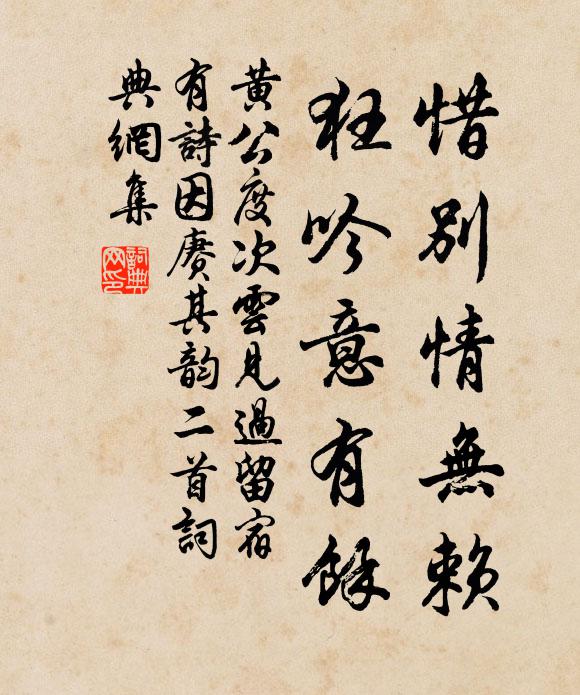 惜別情無賴
狂吟意有餘
黃公度次雲見過留宿
有詩因賡其韵二首詞
典網集
詞典網印